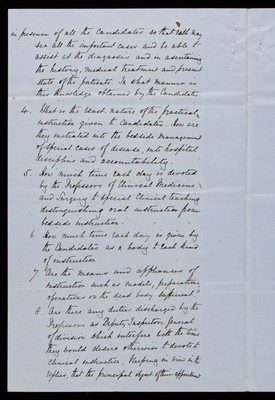 in presence of all the Candidates so that each may
see all the important cases and be able to
assist at the diagnoses and in ascertaining
the history, medical treatment and present
state of the patients. In what manner is
this knowledge obtained by the Candidates
4. What is the exact nature of the practical
instruction given to Candidates. How are
they initiated into the bedside management
of special cases of disease, into hospital
discipline and accountability.
5. How much time each day is devoted
by the Professors of Clinical Medicine
and Surgery to special Clinical teaching
distinguishing oral instruction from
bedside instruction.
6. How much time each day is given by
the Candidates as a body to each kind
of instruction.
7. Are the means and appliances of
instruction such as models, preparations,
operations on the dead body sufficient?
8. Are there any duties discharged by the
Professors as Deputy Inspectors General
of division which interfere with the time
they would desire otherwise to devote to
Clinical instruction, keeping in view in the
replies, that the principal object of their appointment